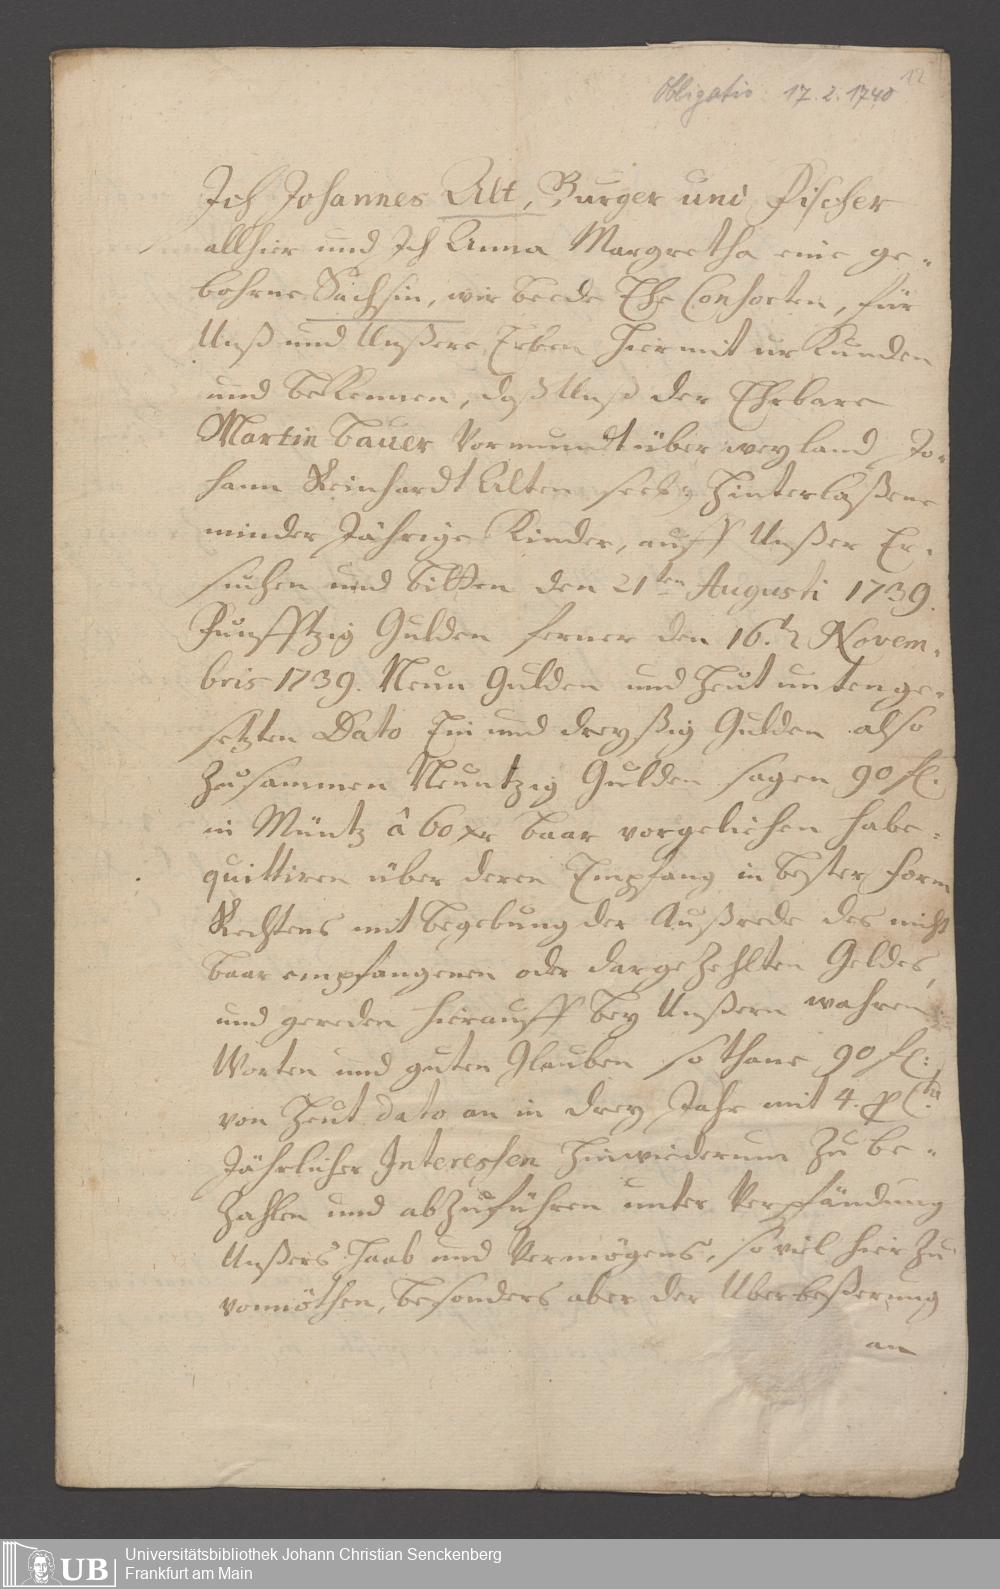 12
Obligatio 17. 2. 1740
Ich Johannes Alt, Burger und Fischer
allhier und Ich Anna Margretha eine ge-
bohrne Sachsin, wir beede Ehe Consorten, für
Unß und Unßere Erben hiermit urkunden
und bekennen, daß Unß der Ehrbare
Martin Bauer Vormundt über weyland Jo-
hann Reinhardt Alten seel: hinterlaßene
minder Jährige Kinder, auff Unßer Er-
suchen und bitten den 21ten Augusti 1739.
Funfftzig Gulden ferner den 16.ten Novem-
bris 1739. Neun Gulden und heut unten ge-
setzten Dato Ein und dreyßig Gulden also
zusammen Neuntzig Gulden sagen 90 fl.
in Müntz â 60 xr baar vorgeliehen habe.
quittiren über deren Empfang in bester form
Rechtens mit begebung der Außrede des nicht
baar empfangenen oder dargezehlten Geldes,
und gereden hierauff bey Unßern wahren
Worten und guten Glauben sothane 90 fl:
von heut dato an in drey Jahr mit 4. p Cto
Jährlicher Interessen hinwiederum zu be-
zahlen und abzuführen unter Verpfändung
Unßers Haab und Vermögens, so viel hierzu
vonnöthen, besonders aber der Uberbeßerung
an
UB
Universitätsbibliothek Johann Christian Senckenberg
Frankfurt am Main